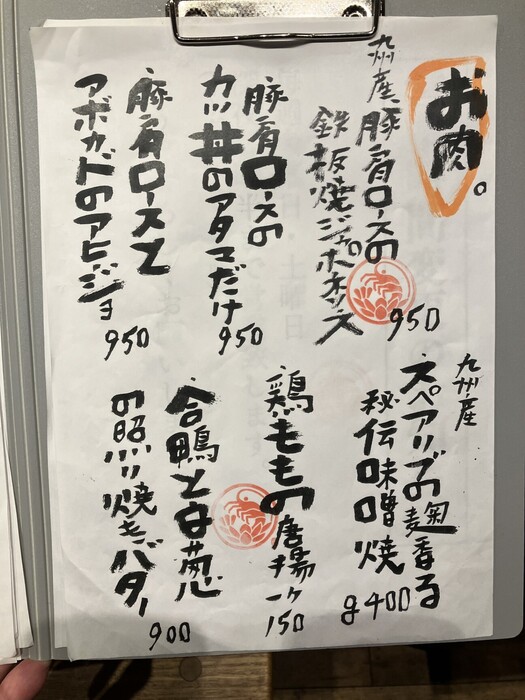 お肉。
九州産、豚肩ロースの
鉄板焼ジャポネソース
950
豚肩ロースの
カツ丼のアタマだけ
950
豚肩ロースと
アボカドのアヒージョ
950
九州産
スペアリブの麹香る
秘伝味噌焼
g400
鶏ももの唐揚一ヶ
150
合鴨と白葱
の照り焼きバター
900